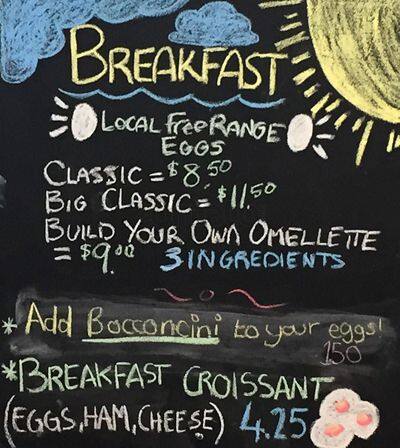 BREAKFAST
LOCAL FREE RANGE
EGGS
CLASSIC = $8.50
BIG CLASSIC = $11.50
BUILD YOUR OWN OMELLETTE
= $9.00 3 INGREDIENTS
* Add Bocconcini to your eggs!
150
*BREAKFAST CROISSANT
(EGGS, HAM, CHEESE) 4.25